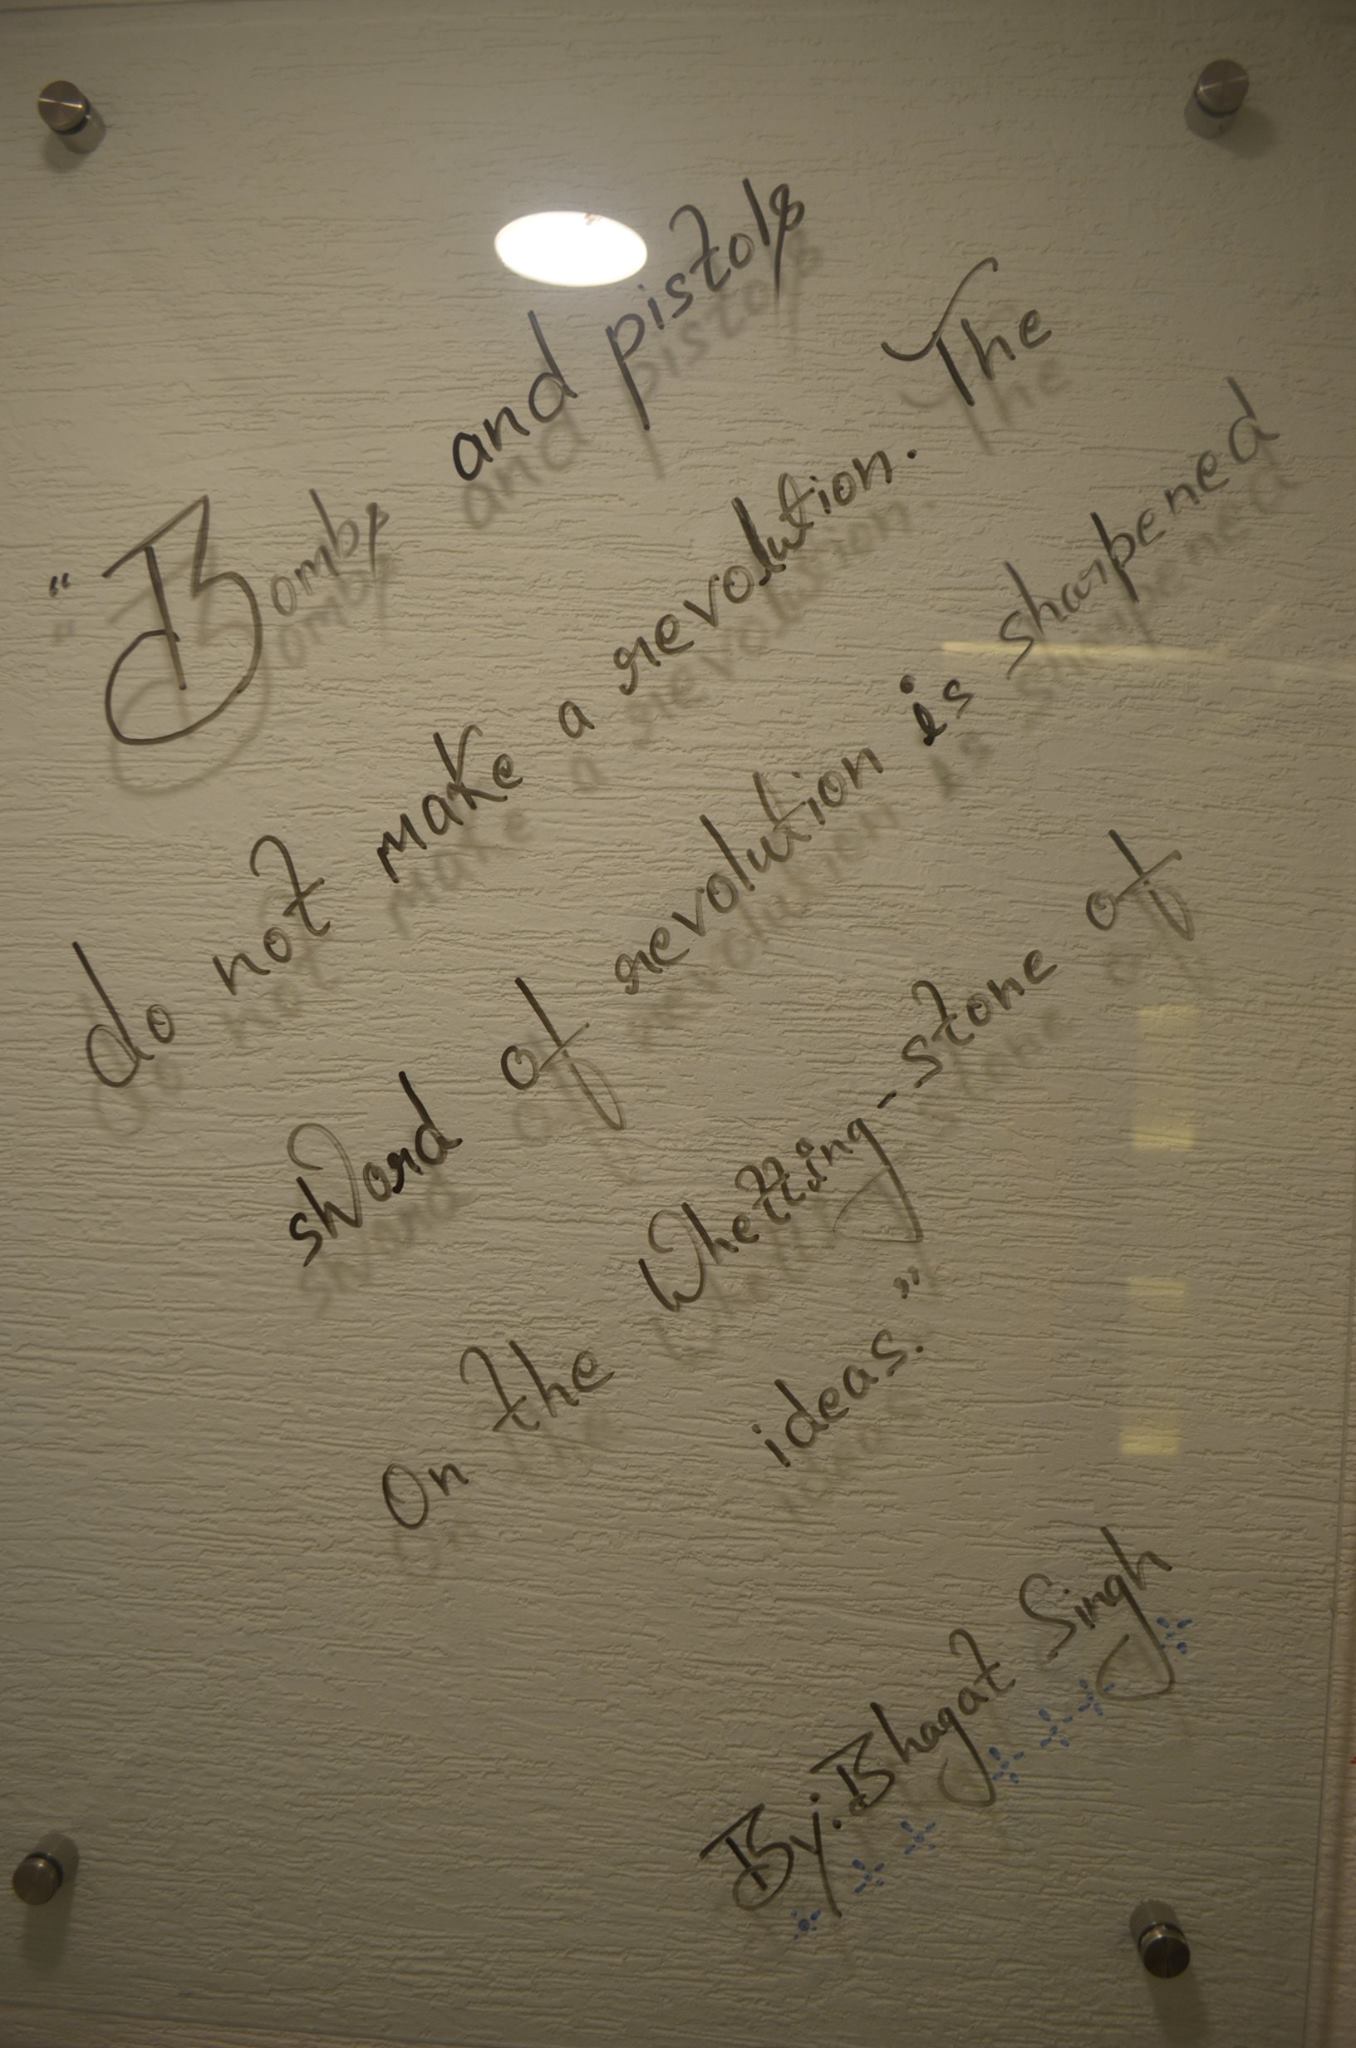 "Bombs and pistols
do not make a revolution. The
sword of revolution is sharpened
On the Whetting-stone of
ideas."
By:Bhagat Singh